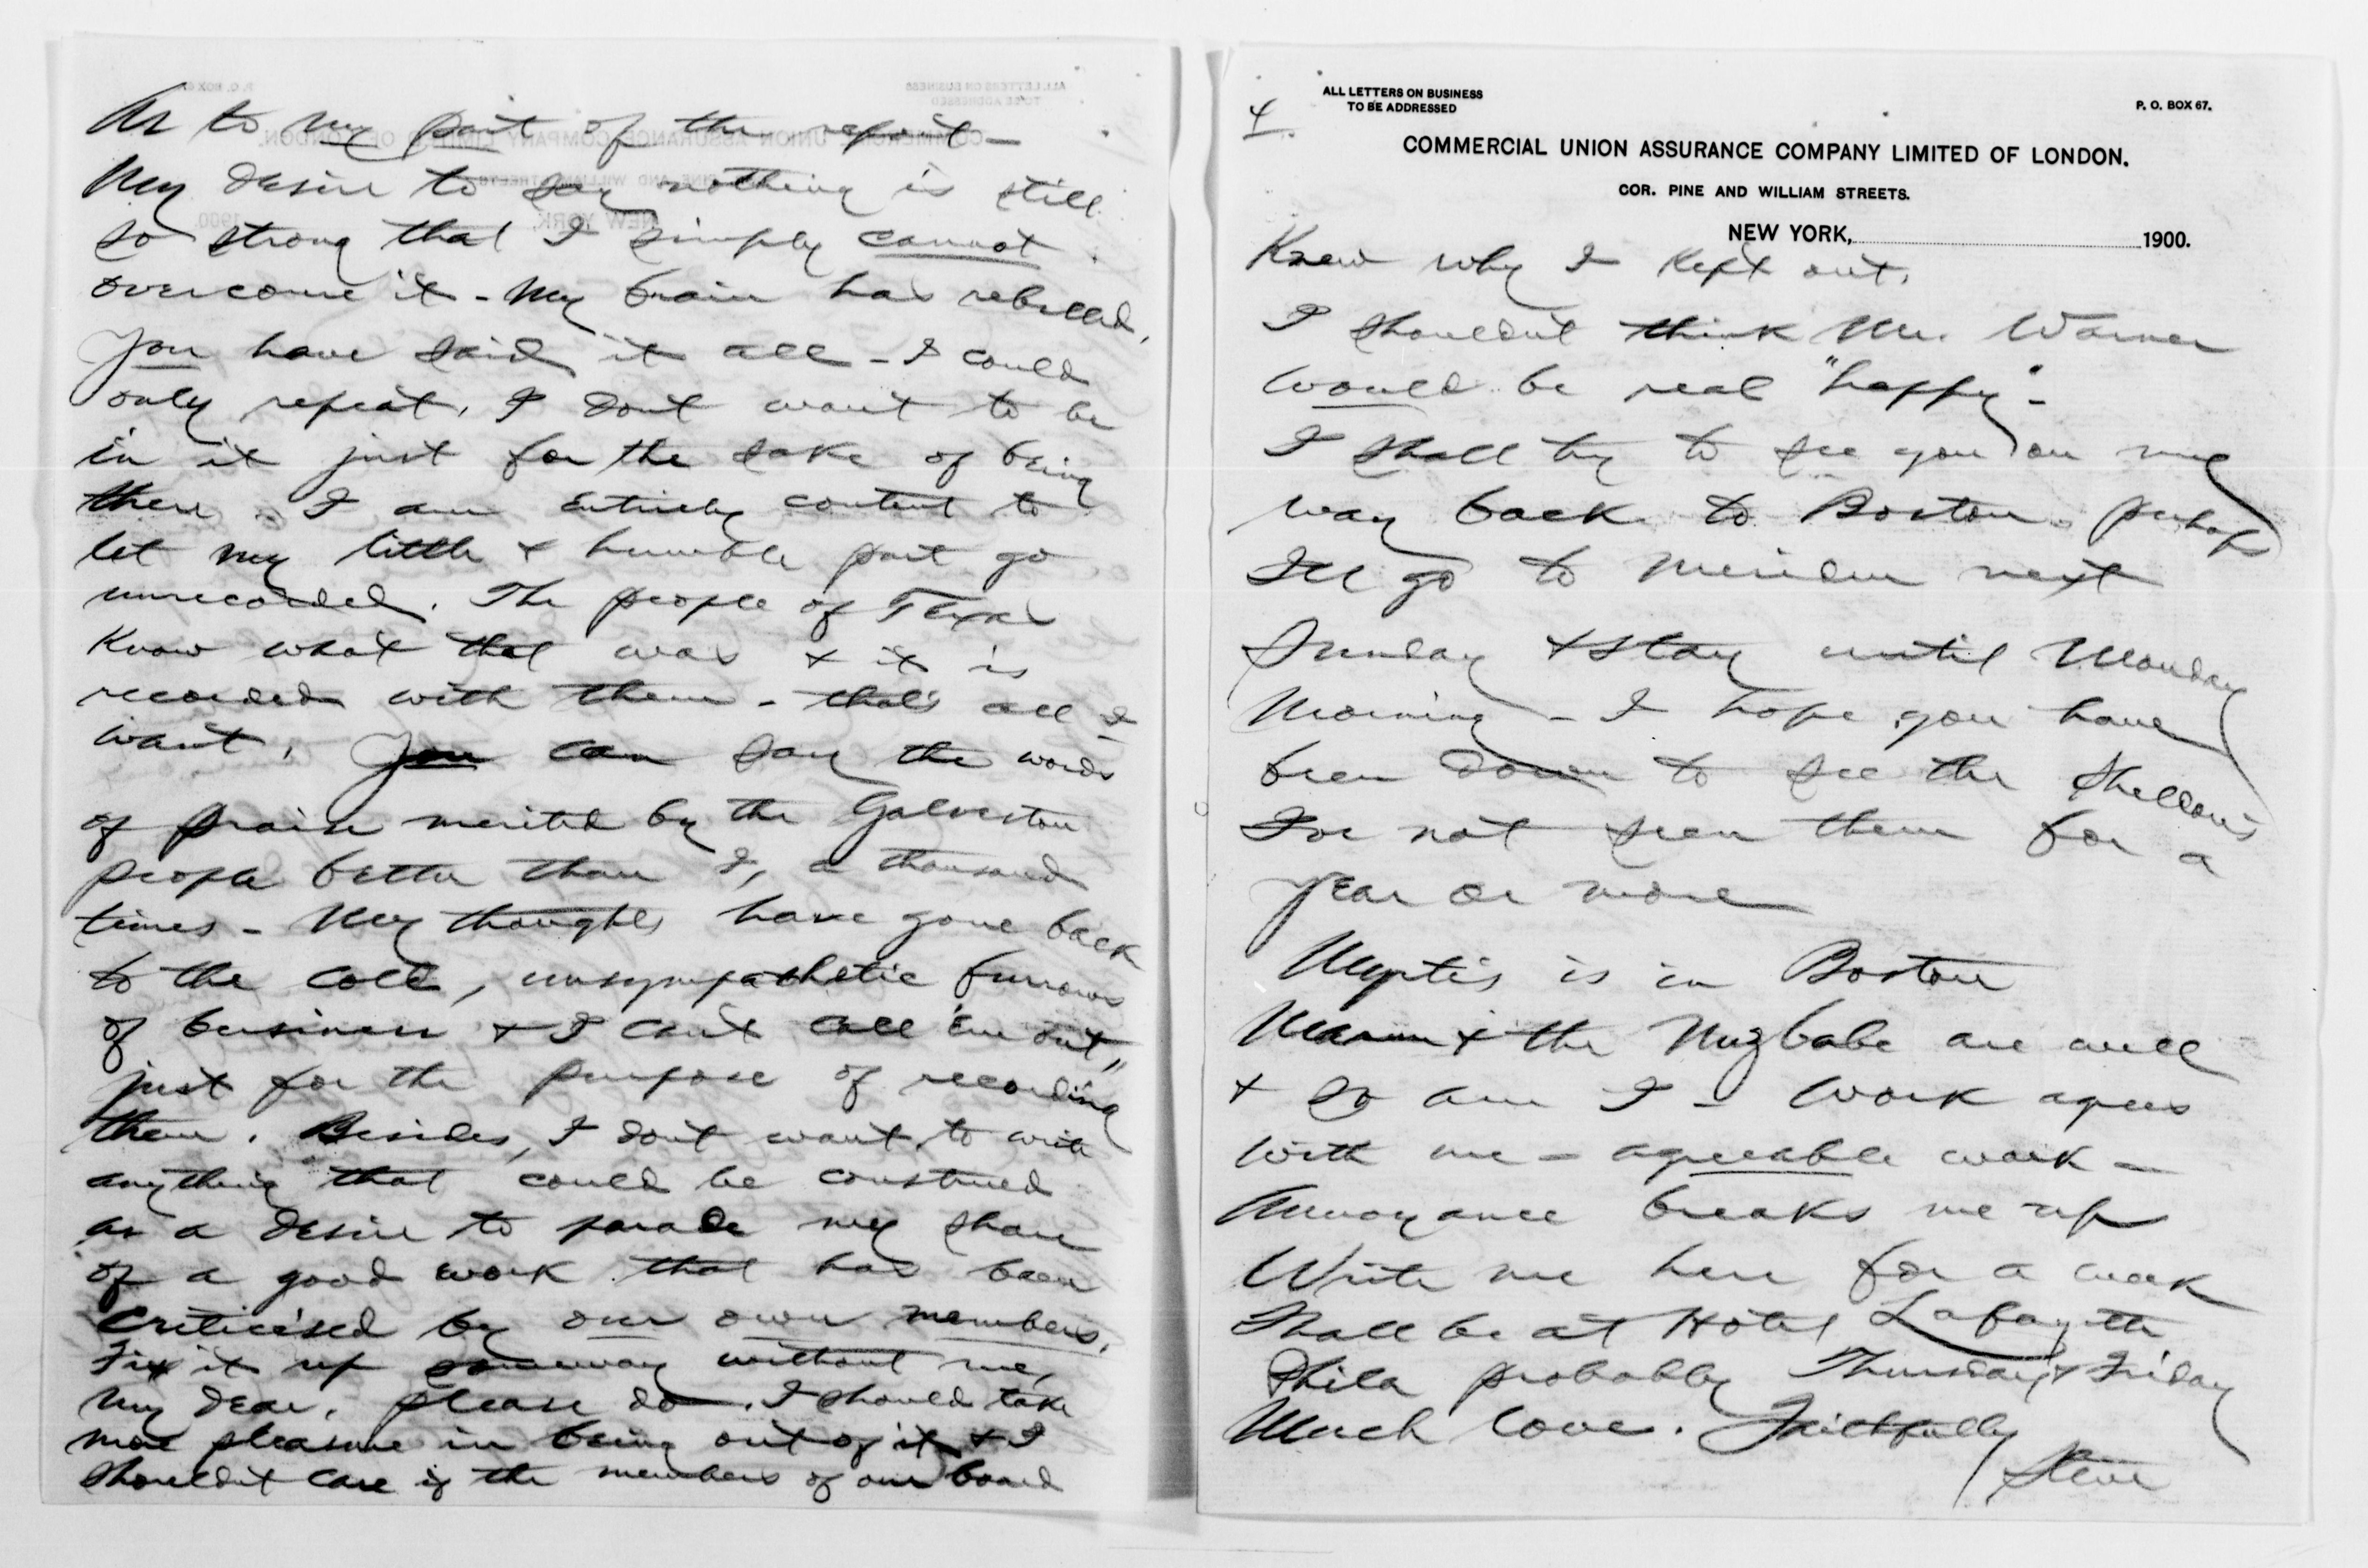 As to my part of the report —
My desire to say nothing is still
so strong that I simply cannot
overcome it - My brain has rebelled,
You have said it all - I could
only repeat. I dont want to be
in it just for the sake of being
there. I am entirely content to
let my little & humble part go
unrecorded. The people of Texas
know what that was & it is
recorded with them - that's all I
want. You can say the words
of praise merited by the Galveston
people better than I, a thousand
times - My thoughts have gone back
to the cold, unsympathetic furrows
of business & I can't call 'em out"
just for the purpose of recording
them. Besides, I don't want to write
anything that could be construed
as a desire to parade my share
of a good work that has been
criticised by our own members.
Fix it up someway without me,
my dear, please do. I should take
more pleasure in being out of it & I
shouldn't care if the members of our board
4
ALL LETTERS ON BUSINESS
TO BE ADDRESSED
P. O. BOX 67.
COMMERCIAL UNION ASSURANCE COMPANY LIMITED OF LONDON.
COR. PINE AND WILLIAM STREETS.
NEW YORK, 1900.
Knew why I kept out.
I shouldn't think Mr. Warner
would be real "happy" -
I shall try to see you on my
way back to Boston. perhaps
I'll go to Meriden next
Sunday & stay until Monday
Morning - I hope you have
been down to see the Sheldons
I've not seen them for a
year or more
Myrtis is in Boston
& the are well
& so am I - Work agrees
with me - agreeable work -
Annoyance breaks me up
Write me here for a week
Shall be at Hotel Lafayette
Phila probably Thursday & Friday
Much love. Faithfully
Steve